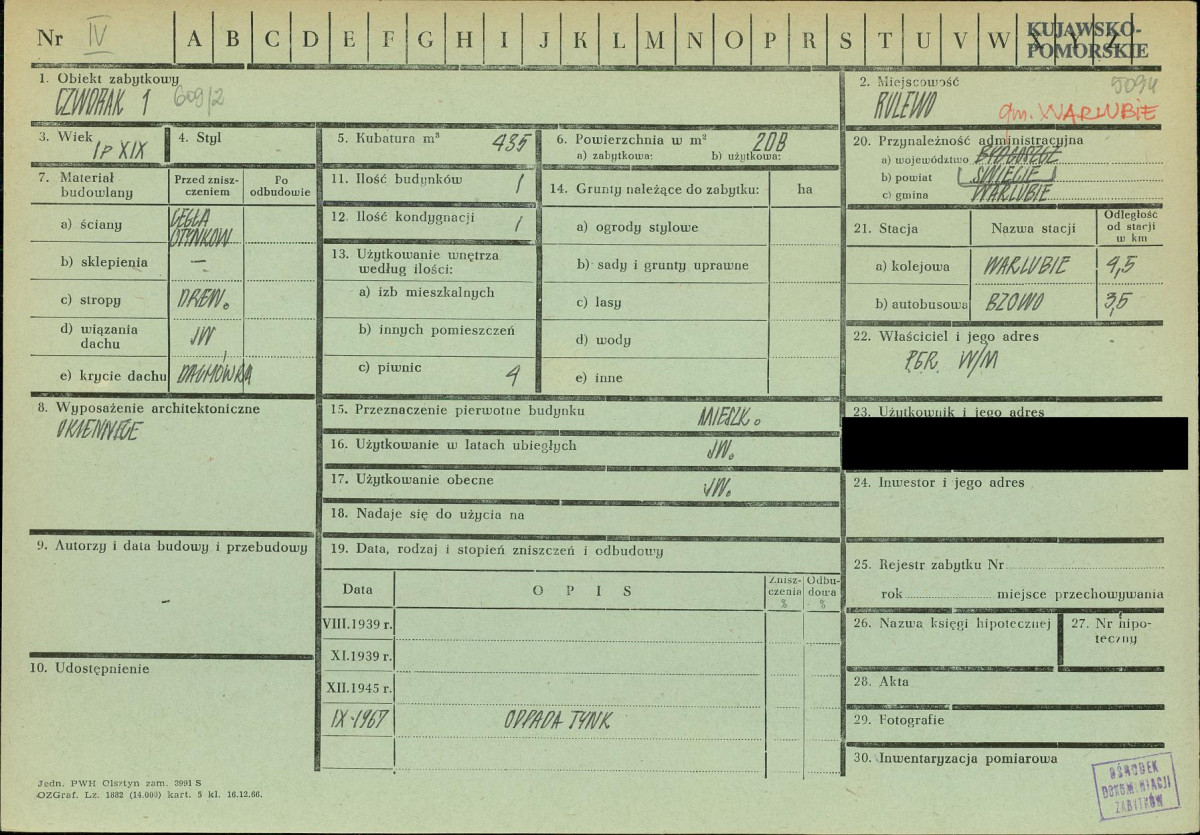 Nr IV A B C D E F G H I J K L M N O P R S T U V W X Y Z
KUJAWSKO-
POMORSKIE
1. Obiekt zabytkowy
CZWORAK 1 609/2
2. Miejscowość 5094
RULEWO gm. WARLUBIE
3. Wiek
I p XIX
4. Styl
5. Kubatura m³ 435
6. Powierzchnia w m² 208
a) zabytkowa: b) użytkowa:
7. Materiał budowlany
Przed znisz-
czeniem
Po
odbudowie
a) ściany CEGŁA
OTYNKOW
b) sklepienia —
c) stropy DREW.
d) wiązania
dachu JW
e) krycie dachu DACHÓWKA
8. Wyposażenie architektoniczne
OKIENNICE
9. Autorzy i data budowy i przebudowy
–
10. Udostępnienie
11. Ilość budynków 1
12. Ilość kondygnacji 1
13. Użytkowanie wnętrza
według ilości:
a) izb mieszkalnych
b) innych pomieszczeń
c) piwnic 4
14. Grunty należące do zabytku: ha
a) ogrody stylowe
b) sady i grunty uprawne
c) lasy
d) wody
e) inne
15. Przeznaczenie pierwotne budynku MIESZK.
16. Użytkowanie w latach ubiegłych JW.
17. Użytkowanie obecne JW.
18. Nadaje się do użycia na
19. Data, rodzaj i stopień zniszczeń i odbudowy
Data OPIS
Znisz-
czenia
%
Odbu-
dowa
%
VIII.1939 r.
XI.1939 r.
XII.1945 r.
IX-1967 ODPADA TYNK
20. Przynależność administracyjna
a) województwo BYDGOSZCZ
b) powiat ŚWIECIE
c) gmina WARLUBIE
21. Stacja Nazwa stacji
Odległość
od stacji
w km
a) kolejowa WARLUBIE 4,5
b) autobusowa BZOWO 3,5
22. Właściciel i jego adres
P.G.R. W/M
23. Użytkownik i jego adres
24. Inwestor i jego adres
25. Rejestr zabytku Nr
rok miejsce przechowywania
26. Nazwa księgi hipotecznej
27. Nr hipo-
teczny
28. Akta
29. Fotografie
30. Inwentaryzacja pomiarowa
OŚRODEK
DOKUMENTACJI
ZABYTKÓW
Jedn. PWH Olsztyn zam. 3991 S
OZGraf. Lz. 1882 (14.000) kart. 5 kl. 16.12.66.